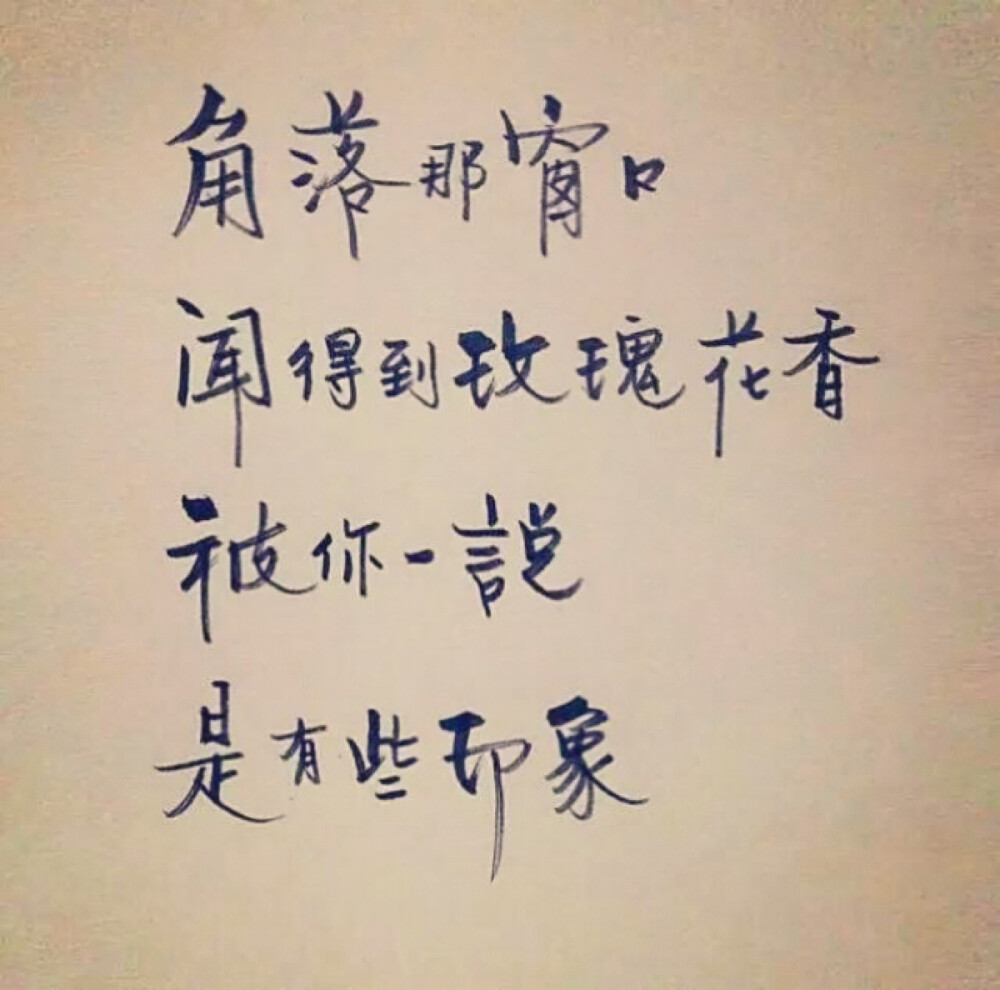 角落那窗口
闻得到玫瑰花香
被你一説
是有些印象